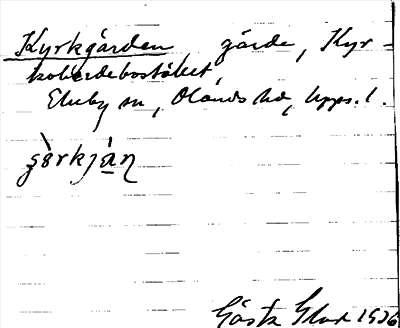 Kyrkgården, gärde, Kyr-
koherdebostället,
Ekeby sn, Olands hd, Upps. l.
Gösta 1936